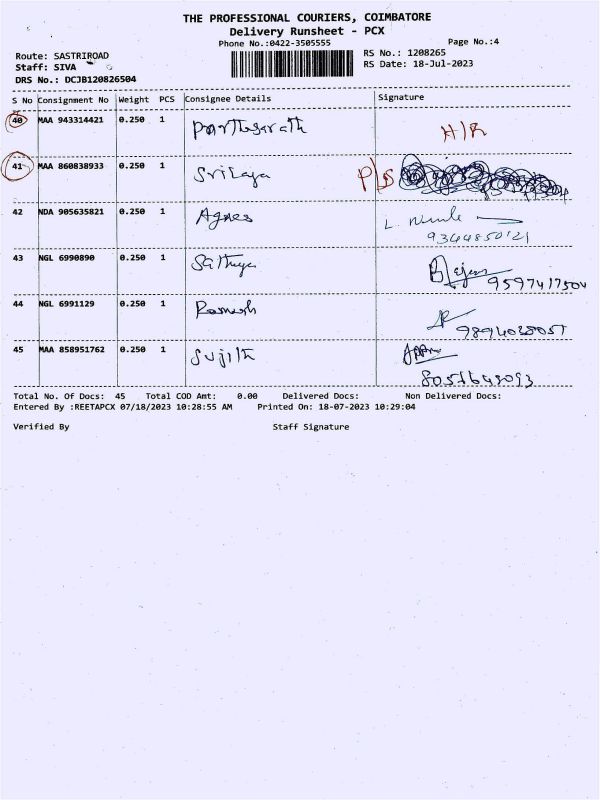 THE PROFESSIONAL COURIERS, COIMBATORE
Delivery Runsheet - PCX
Phone No.:0422-3505555 Page No.:4
Route: SASTRIROAD RS No.: 1208265
Staff: SIVA RS Date: 18-Jul-2023
DRS No.: DCJB120826504
S No Consignment No Weight PCS Consignee Details Signature
40 MAA 943314421 0.250 1 Parthasarath H/R
41 MAA 860838933 0.250 1 Srilaya P/S
42 NDA 905635821 0.250 1 Agnes
9344850121
43 NGL 6990890 0.250 1 Sathya
9597417504
44 NGL 6991129 0.250 1 Ramesh
45 MAA 858951762 0.250 1 Sujith
Total No. Of Docs: 45 Total COD Amt: 0.00 Delivered Docs: Non Delivered Docs:
Entered By :REETAPCX 07/18/2023 10:28:55 AM Printed On: 18-07-2023 10:29:04
Verified By Staff Signature